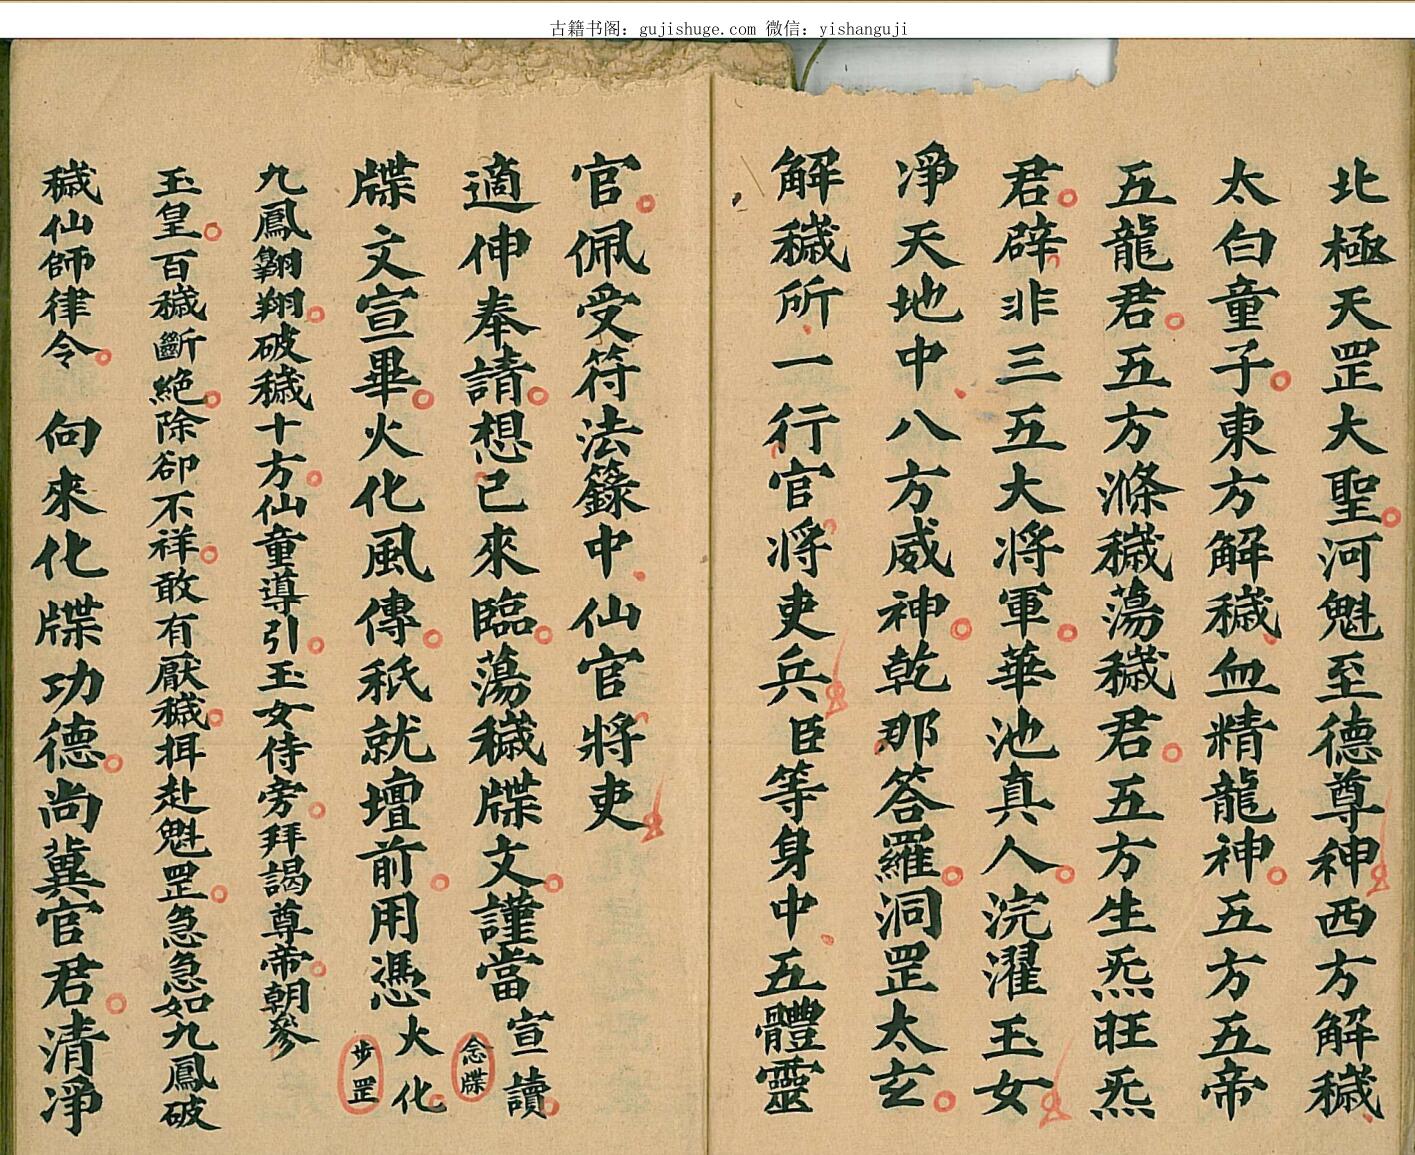 古籍书阁：gujishuge.com 微信：yishanguji
北極天罡大聖河魁至德尊神西方解穢
太白童子東方解穢血精龍神五方五帝
五龍君五方滌穢蕩穢君五方生炁旺炁
君辟非三五大將軍華池真人浣濯玉女
淨天地中八方威神乾那答羅洞罡太玄
解穢所一行官將吏兵臣等身中五體靈
官佩受符法籙中仙官將吏
適伸奉請想已來臨蕩穢牒文謹當宣讀
念牒
牒文宣畢火化風傳秖就壇前用憑火化
步罡
九鳳翱翔破穢十方仙童導引玉女侍旁拜謁尊帝朝參
玉皇百穢斷絶除卻不祥敢有厭穢揖赴魁罡急急如九鳳破
穢仙師律令 向來化牒功德尚冀官君清淨